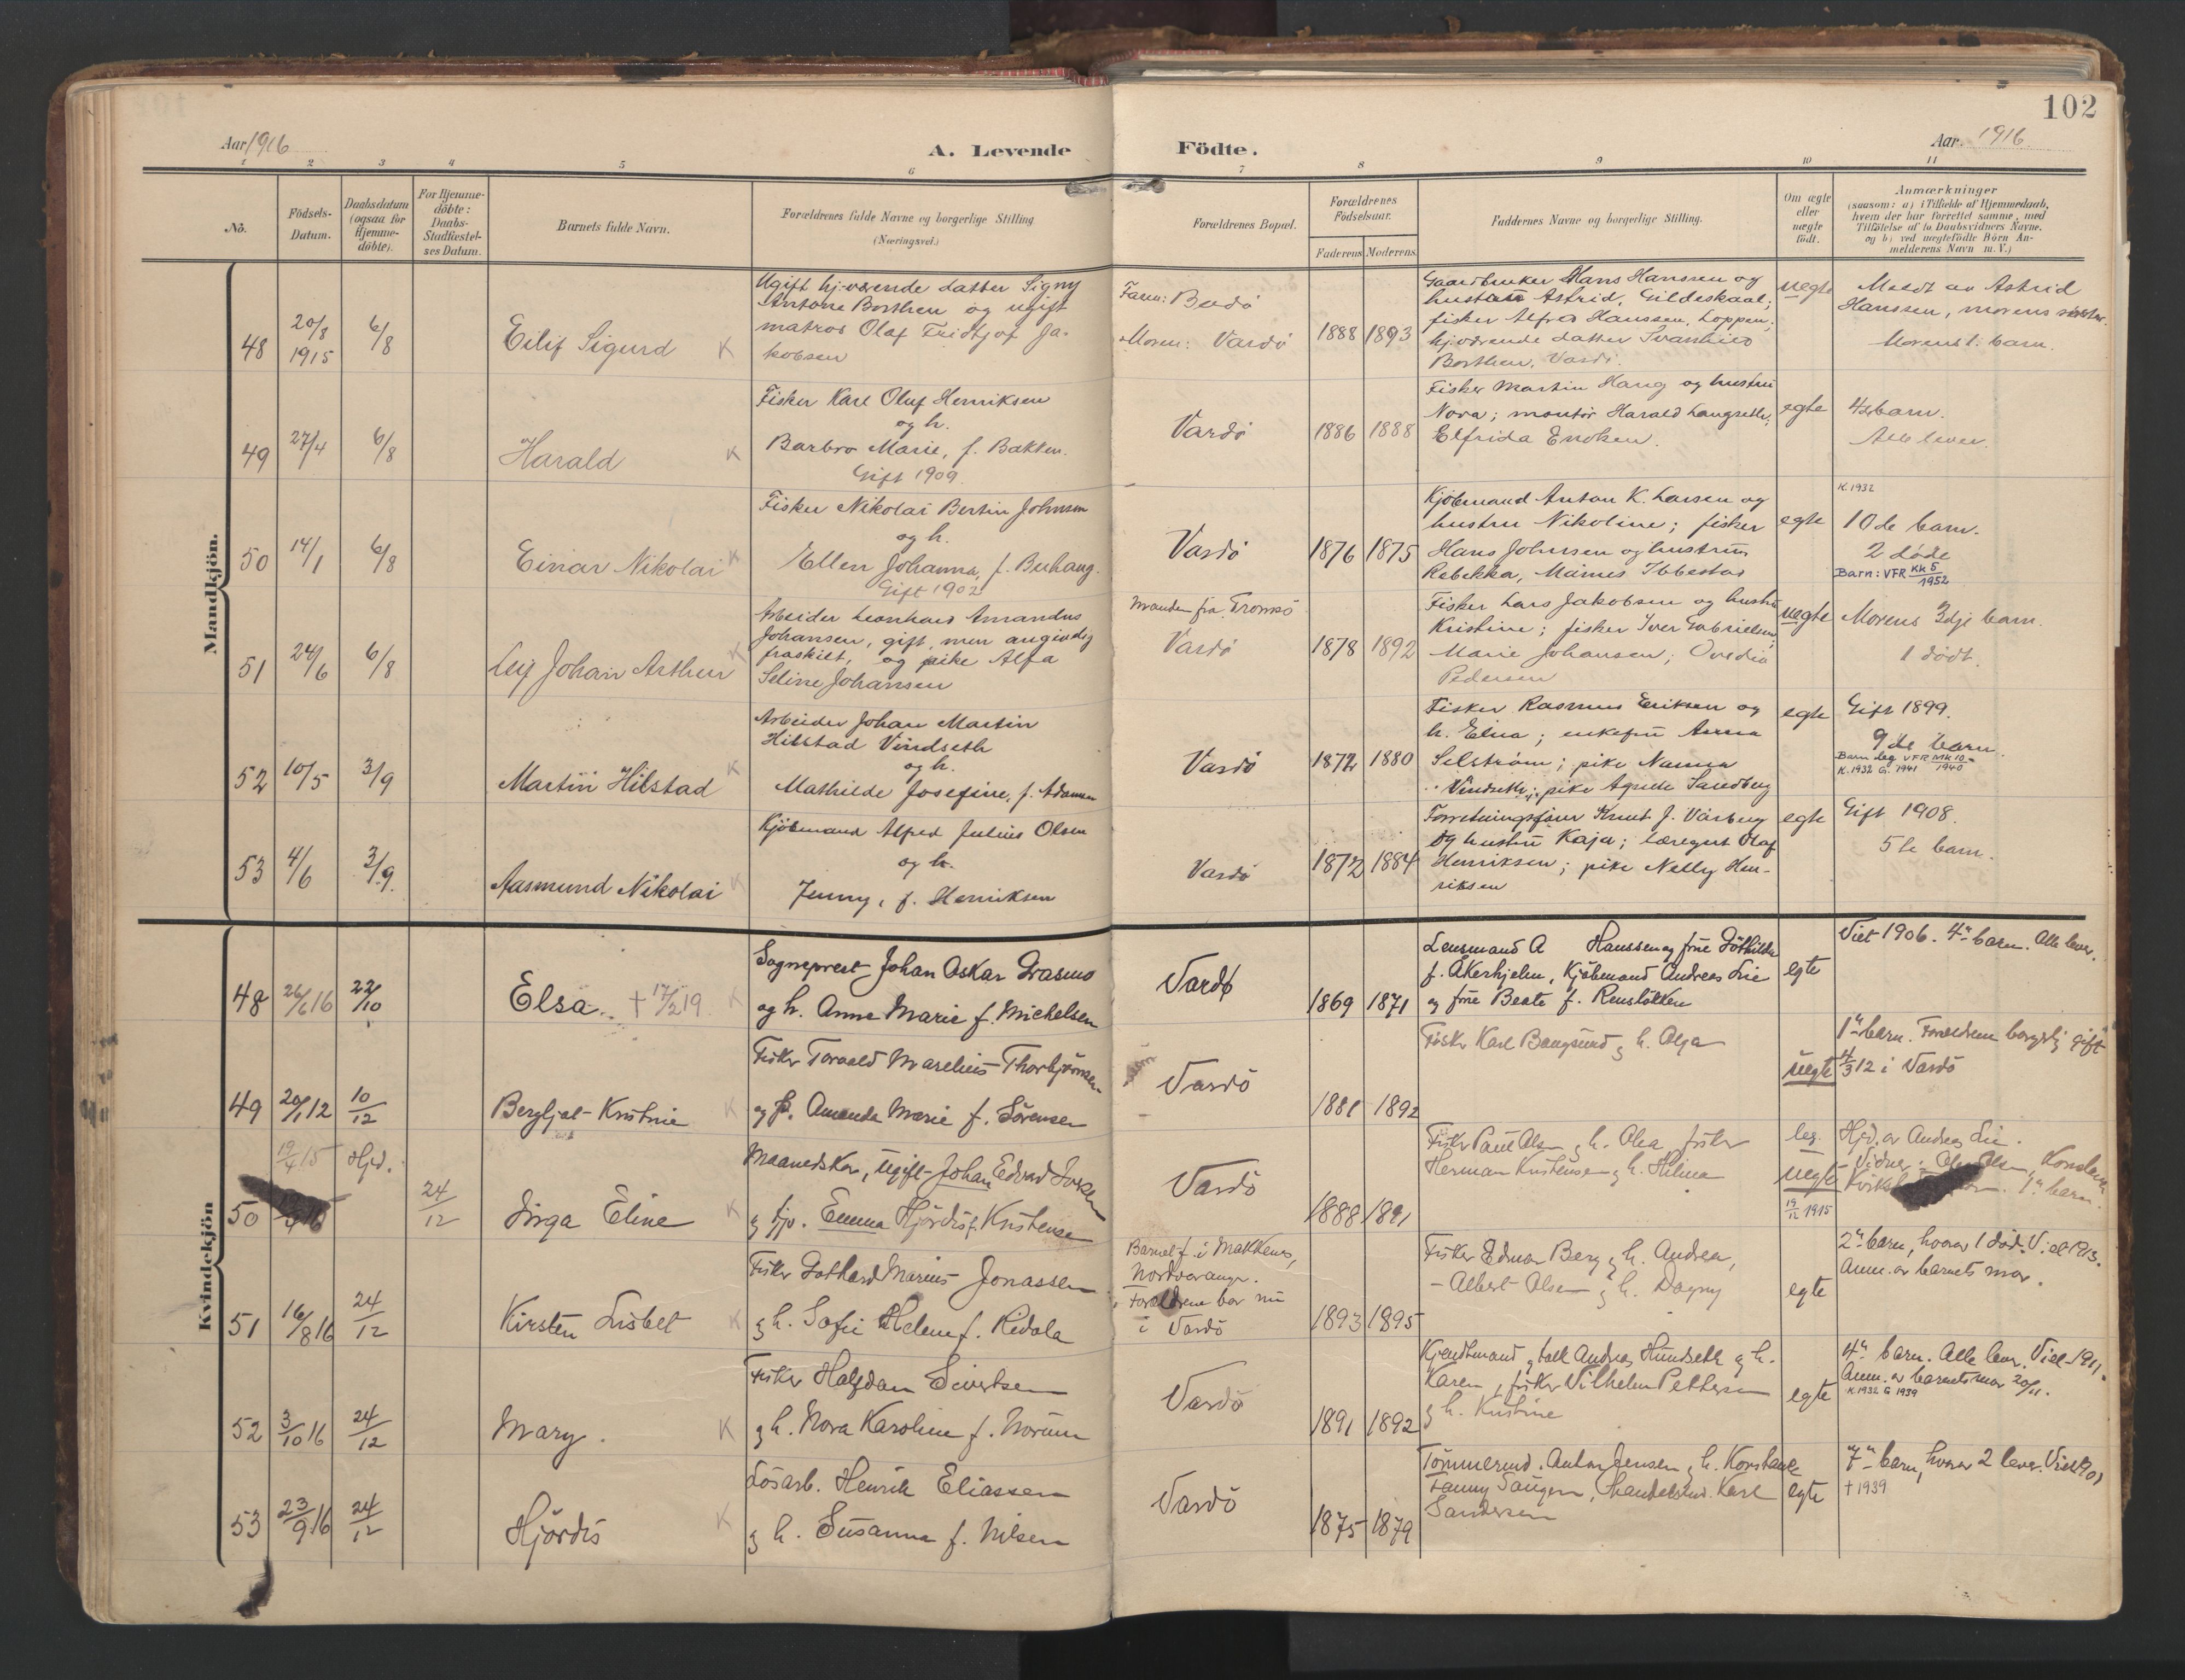 102
Aar 1916
A. Levende
Födte.
Aar. 1916
1
2
3
4
5
6
7
8
9
10
11
No.
Födsels-
Datum.
Daabsdatum
(ogsaa for
Hjemme-
döbte).
For Hjemme-
döbte:
Daabs-
Stadfæstel-
ses Datum.
Barnets fulde Navn.
Forældrenes fulde Navne og borgerlige Stilling
(Næringsvei.)
Forældrenes Bopæl.
Forældrenes
Födselsaar.
Faderens
Moderens
Faddernes Navne og borgerlig Stilling.
Om ægte
eller
uægte
födt.
Anmærkninger
(saasom: a) i Tilfælde af Hjemmedaab,
hvem der har forrettet samme, med
Tilföielse af to Daabsvidners Navne,
og b) ved uægtefödte Börn An-
melderens Navn m. V.)
Mandkjön.
48
20/8
1915
6/8
Eilif Sigurd
K
Ugift hj.værende datter Signy
Antone Borthen og ugift
matros Olaf Fridtjof Ja-
kobsen
Faren: Bodö
Moren: Vardö
1888
1893
Gaardbruker Hans Hanssen og
hustru Astrid, Gildeskaal;
fisker Alfred Hanssen, Loppen;
hj.værende datter
Borthen, Vardö.
uegte
Meldt av Astrid
Hanssen, morens söster.
Morens 1. barn.
49
27/4
6/8
Harald
K
Fisker Karl Oluf Henriksen
og h.
Barbro Marie, f. Bakken.
Gift 1909.
Vardö
1886
1888
Fisker Martin Haug og hustru
Nora; montör Harald Langseth;
Elfrida Enoksen.
egte
4de barn.
Alle lever.
50
14/1
6/8
Einar Nikolai
K
Fisker Nikolai Bertin Johnsen
og h.
Ellen Johanna, f. Buhaug.
Gift 1902
Vardö
1876
1875
Kjöbmand Anton K. Larsen og
hustru Nikoline; fisker
Hans Johnsen og hustru
Rebekka, Ibbestad
egte
K. 1932
10de barn.
2 döde
Barn: VFR KK 5
1952
51
24/6
6/8
Leif Johan Arthur
K
Arbeider Leonhard Amandus
Johansen, gift, men angivelig
fraskilt, og pike Alfa
Seline Johansen
Manden fra Tromsö
Vardö
1878
1892
Fisker Lars Jakobsen og hustru
Kristine; fisker Iver Gabrielsen;
Marie Johansen; Ovedia
Pedersen
uegte
Morens 3dje barn.
1 dödt.
52
10/5
3/9
Martin Hilstad
K
Arbeider Johan Martin
Hilstad Vindseth
og h.
Mathilde Josefine, f. Adamsen
Vardö
1872
1880
Fisker Rasmus Eriksen og
h. Elna; enkefru Anna
Selström; pike Nanna
Vindseth; pike Agnete Sandberg
egte
Gift 1899.
9de barn.
Barn Lég VFR MK 10-
K. 1932 G. 1941 1940
53
4/6
3/9
Aasmund Nikolai
K
Kjöbmand Alfred Julius Olsen
og h.
Jenny, f. Henriksen
Vardö
1872
1884
Forretningsförer Knut J. Varberg
og hustru Kaja; læregut Olaf
Henriksen; pike Nelly Hen-
riksen
egte
Gift 1908.
5te barn.
Kvindekjön
48
26/6 16
22/10
Elsa. † 17/2 19.
K
Sogneprest Johan Oskar Grasmo
og h. Anne Marie f. Michelsen
Vardö
1869
1871
Lensmand A Hanssen og frue
f. Åkerhjelm, Kjöbmand Andreas Lie
og frue Beate f. Renslökken
egte
Viet 1906. 4de barn. Alle lever.
49
20/1 12
10/12
Bergljot Kristine
K
Fisker Torvald Marelius Thorbjörnsen
og h. Amanda Marie f. Sörensen
Vardö
1881
1892
Fisker Karl Bangsund og h. Olga
uegte
1ste barn. Forældrene borgerlig gift
4/3 12 i Vardö
50
19/4 15
Hjd.
24/12
Inga Eline
K
Maanedskar, ugift Johan Edvard
og tjp. Emma Hjördis f. Kristensen
Vardö
1888
1891
Fisker Paul Olsen og h. Olea, fisker
Herman Kristensen og h. Hilma
leg.
uegte
19/12 1915
Hjd. av Andreas Lie.
Vidner: Olsen,
1ste barn.
51
16/8 16
24/12
Kirsten Lisbet
K
Fisker Gothard Marius Jonassen
og h. Sofie Helene f. Ridola
Barnet f. i Makkenes,
Nordvaranger.
Forældrene bor nu
i Vardö
1893
1895
Fisker Edvar Berg og h. Andrea,
- Albert Olsen og h. Dagny
egte
2det barn, hvorav 1 död. Viet 1913.
Anm. av barnets mor.
52
3/10 16
24/12
Mary.
K
Fisker Halfdan Sivertsen
og h. Nora Karoline f. Norum
Vardö
1891
1892
Kjendtmand og Andreas Hundseth og h.
Karen, fisker Vilhelm Pettersen
og h. Kristine
egte
4de barn. Alle lever. Viet 1911.
Anm. av barnets mor 20/11.
K. 1932 G 1939
53
23/9 16
24/12
Hjördis
K
Lösarb. Henrik Eliassen
og h. Susanna f. Nilsen
Vardö
1875
1879
Tömmermd. Anton Jensen og h. Konstanse
Fanny Saugen, Handelsmd. Karl
Sandersen
egte
7de barn, hvorav 2 lever. Viet 1901
† 1939